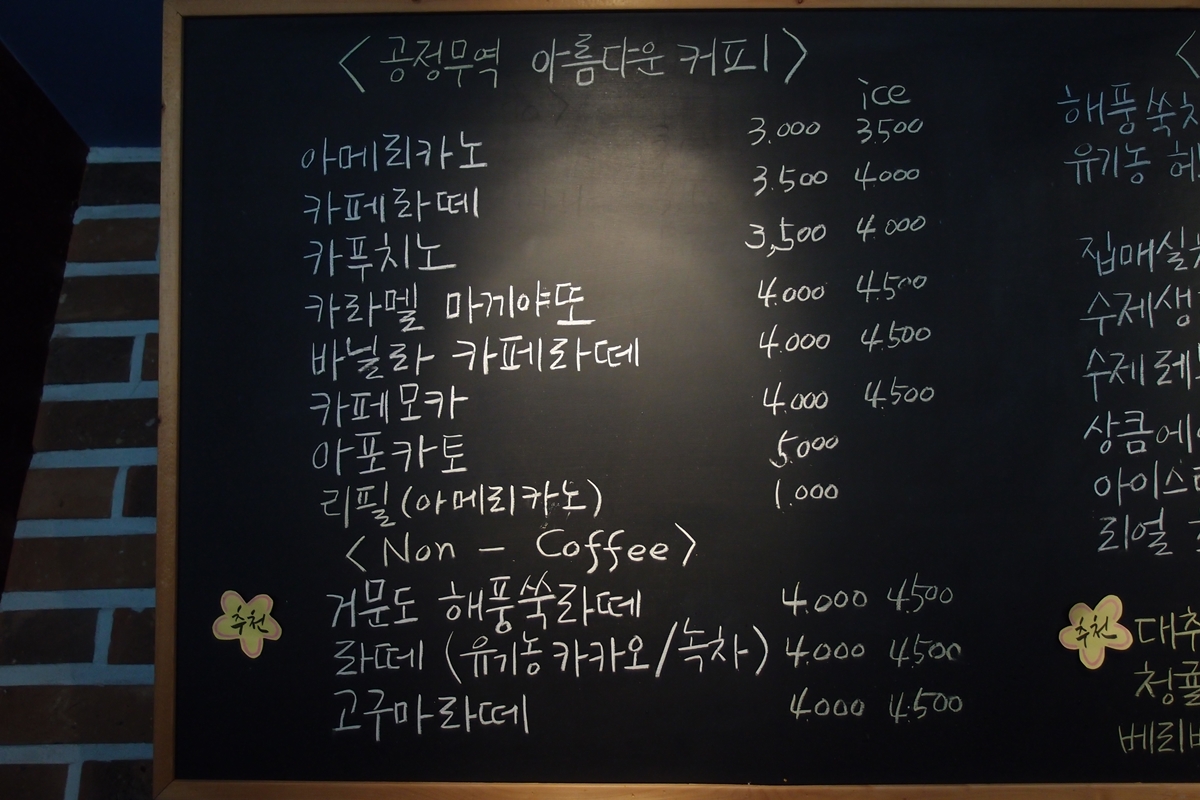 <공정무역 아름다운 커피>
ice
아메리카노 3.000 3.500
카페라떼 3.500 4.000
카푸치노 3,500 4.000
카라멜 마끼야또 4.000 4.500
바닐라 카페라떼 4.000 4.500
카페모카 4.000 4.500
아포카토 5.000
리필(아메리카노) 1.000
<Non - Coffee>
추천 거문도 해풍쑥라떼 4.000 4.500
라떼 (유기농카카오/녹차) 4.000 4.500
고구마라떼 4.000 4.500
<
해풍쑥차
유기농
집매실
수제생
수제레
상큼에이
아이스
리얼
추천 대추
청귤
베리